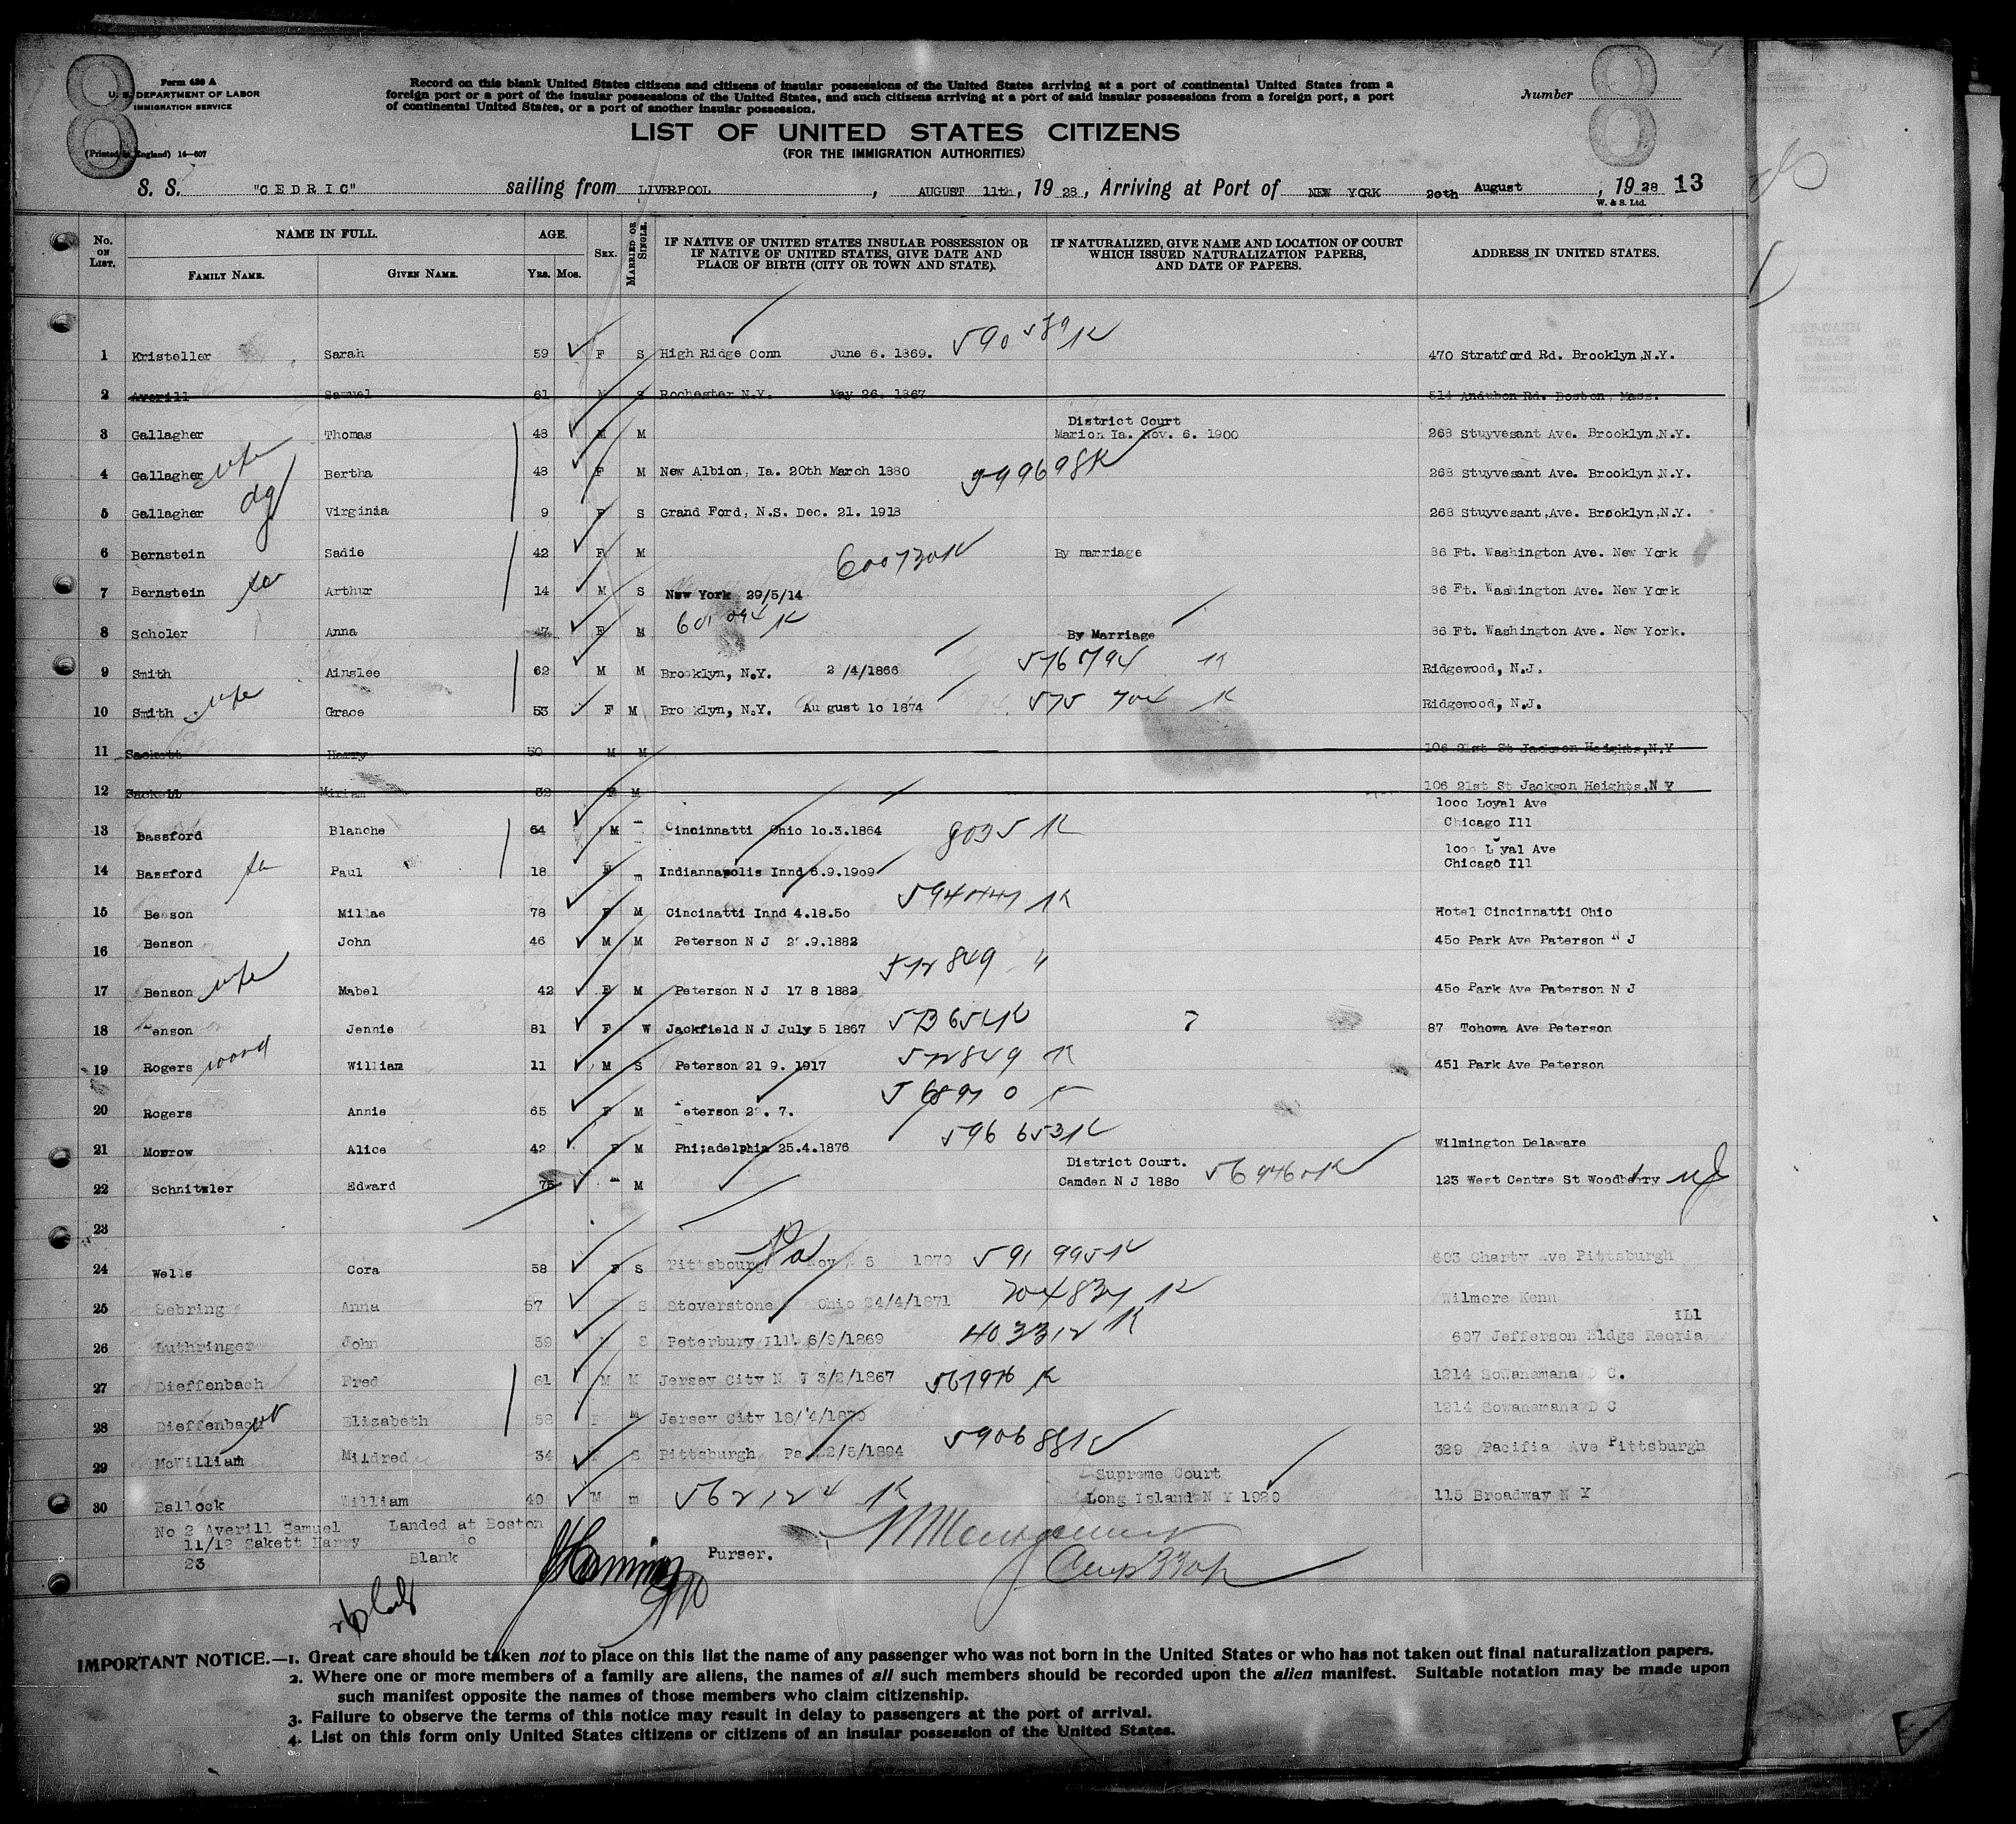 8
Form 630 A
U. S. DEPARTMENT OF LABOR
IMMIGRATION SERVICE
(Printed in England) 14—607
Record on this blank United States citizens and citizens of insular possessions of the United States arriving at a port of continental United States from a
foreign port or a port of the insular possessions of the United States, and such citizens arriving at a port of said insular possessions from a foreign port, a port
of continental United States, or a port of another insular possession.
Number
8
LIST OF UNITED STATES CITIZENS
(FOR THE IMMIGRATION AUTHORITIES)
S. S. "CEDRIC" sailing from LIVERPOOL, AUGUST 11th, 1928, Arriving at Port of NEW YORK 20th August, 1928 13
W. & S. Ltd.
No. ON LIST. NAME IN FULL. FAMILY NAME. GIVEN NAME. AGE. Yrs. Mos. SEX. MARRIED OR SINGLE. IF NATIVE OF UNITED STATES INSULAR POSSESSION OR IF NATIVE OF UNITED STATES, GIVE DATE AND PLACE OF BIRTH (CITY OR TOWN AND STATE). IF NATURALIZED, GIVE NAME AND LOCATION OF COURT WHICH ISSUED NATURALIZATION PAPERS, AND DATE OF PAPERS. ADDRESS IN UNITED STATES.
1 Kristeller Sarah 59 F S High Ridge Conn June 6. 1869. 590589K 470 Stratford Rd. Brooklyn,N.Y.
2 Averill Samuel 61 M S Rochester N.Y. May 26. 1867 514 Andubon Rd. Boston, Mass.
3 Gallagher Thomas 48 M M District Court Marion Ia. Nov. 6. 1900 268 Stuyvesant Ave. Brooklyn,N.Y.
4 Gallagher wife Bertha 48 F M New Albion, Ia. 20th March 1880 268 Stuyvesant Ave. Brooklyn,N.Y.
5 Gallagher dg Virginia 9 F S Grand Ford, N.S. Dec. 21. 1918 268 Stuyvesant,Ave. Brooklyn,N.Y.
6 Bernstein Sadie 42 F M 600730K By marriage 86 Ft. Washington Ave. New York
7 Bernstein Arthur 14 M S New York 29/5/14 86 Ft. Washington Ave. New York
8 Scholer Anna 47 F M By Marriage 86 Ft. Washington Ave. New York.
9 Smith Ainslee 62 M M Brooklyn, N.Y. 2 /4/1866 Ridgewood, N.J.
10 Smith wife Grace 53 F M Bro klyn, N.Y. Au gust 1o 1874 575 704 K Ridgewood, N.J.
11 Sackett Harry 50 M M 106 21st St Jackson Heights,N.Y
12 Sackett Miriam 32 F M 106 21st St Jackson Heights,N Y
13 Bassford Blanche 64 M Cincinnatti Ohio 1o.3.1864 8035 K 1ooo Loyal Ave Chicago Ill
14 Bassford Paul 18 M m Indiannapolis Innd 6.9.19o9 1ooo L yal Ave Chicago Ill
15 Benson Millae 78 F M Cincinatti Innd 4.18.5o Hotel Cincinnatti Ohio
16 Benson John 46 M M Peterson N J 2 .9.1882 45o Park Ave Paterson N J
17 Benson wife Mabel 42 F M Peterson N J 17 8 1882 572849 45o Park Ave Paterson N J
18 enson Jennie 81 F W Jackfield N J July 5 1867 ? 87 Tohowa Ave Peterson
19 Rogers William 11 M S Peterson 21 9. 1917 572849 K 451 Park Ave Peterson
20 Rogers Annie 65 F M eterson 2 . 7.
21 Morrow Alice 42 F M Phi;adelphia 25.4.1876 596 653K Wilmington Delaware
22 Schnitzler Edward 75 M M District Court. Camden N J 188o 123 West Centre St Woodberry NJ
23
24 Wells Cora 58 F S Pittsbourg Pa Nov 5 1870 591 995K 603 Charty Ave Pittsburgh
25 Sebring Anna 57 S Stoverstone Ohio 24/4/1871 Wilmore Kenn
26 Luthringer John 59 S Peterbury Ill. 6/9/1869 403312 K 607 Jefferson Bldgs Reoria ILl
27 Dieffenbach Fred 61 M M Jersey City N J 3/2/1867 1214 Sowanamana D C.
28 Dieffenbach Elizabeth 58 F M Jersey City 18/4/1870 1214 Sowanamana D C
29 McWilliam Mildred 34 F S Pittsburgh Pa 22/5/1894 590688K 329 Pacifia Ave Pittsburgh
30 Ballock William 40 M m 562124 K Supreme Court Long Island N Y 1920 115 Broadway N Y
No 2 Averill Samuel Landed at Boston
11/12 Sakett Harry Do
23 Blank
Purser.
IMPORTANT NOTICE.—1. Great care should be taken not to place on this list the name of any passenger who was not born in the United States or who has not taken out final naturalization papers.
2. Where one or more members of a family are aliens, the names of all such members should be recorded upon the alien manifest. Suitable notation may be made upon
such manifest opposite the names of those members who claim citizenship.
3. Failure to observe the terms of this notice may result in delay to passengers at the port of arrival.
4. List on this form only United States citizens or citizens of an insular possession of the United States.